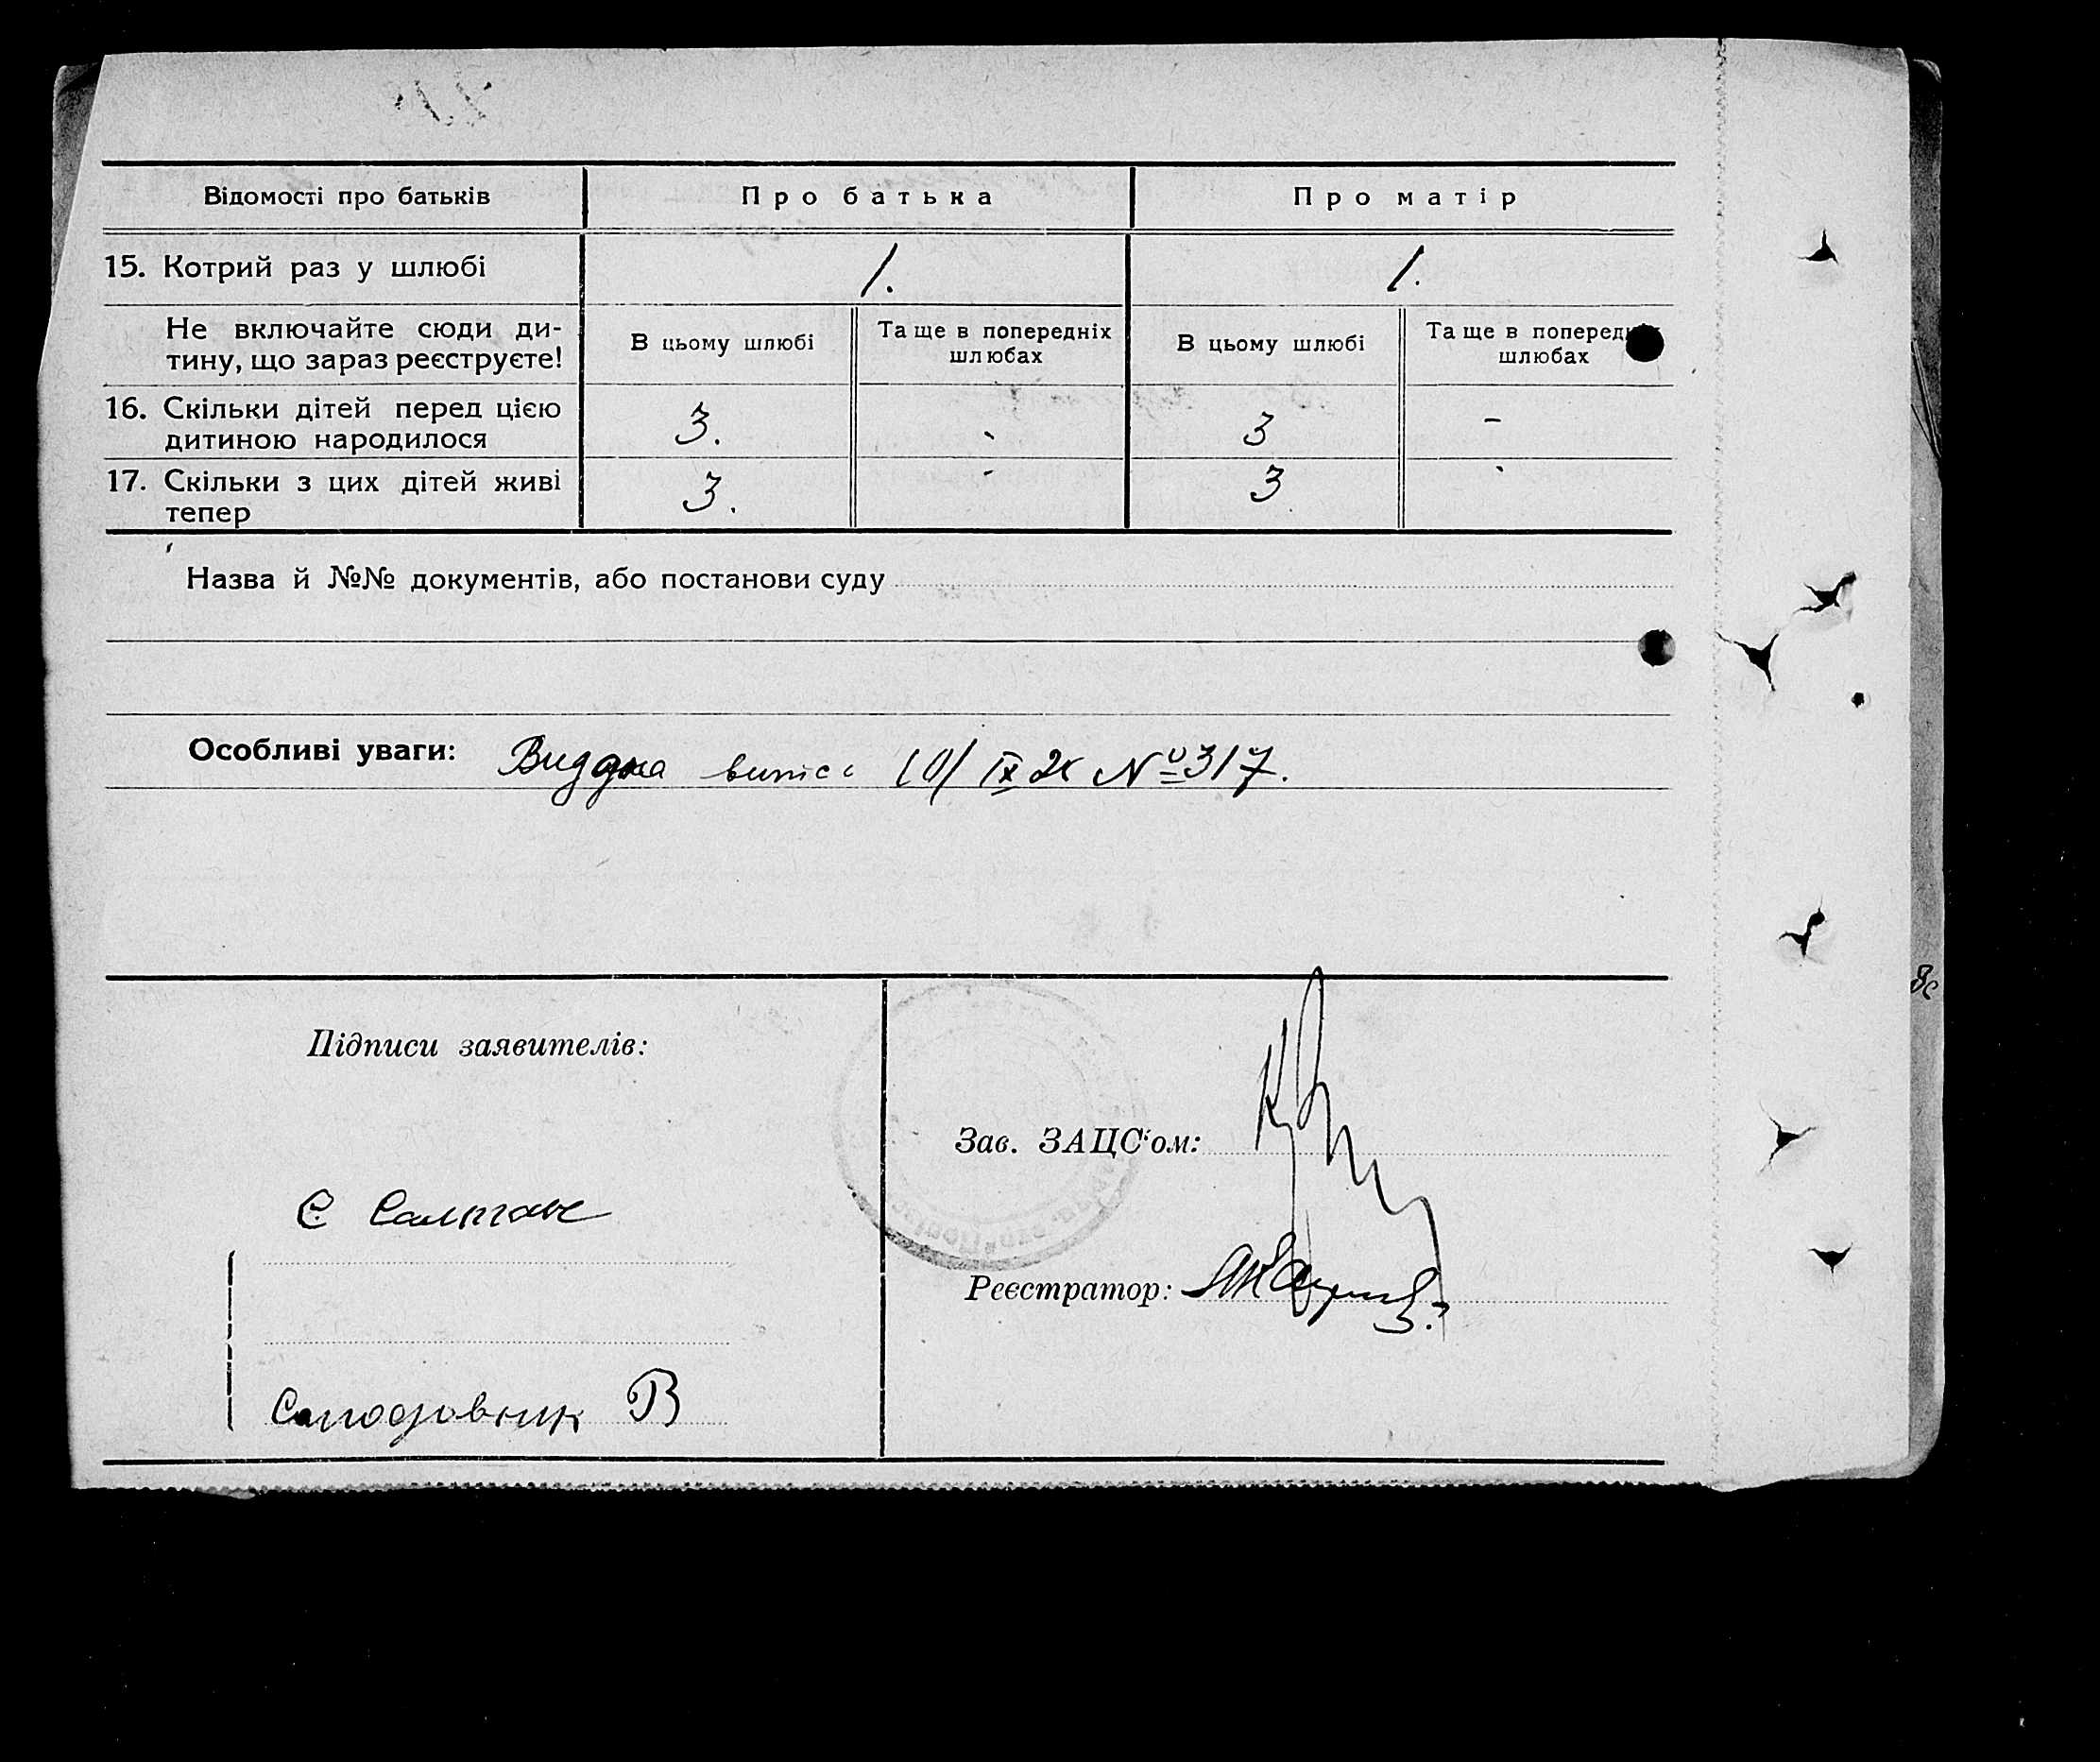 Відомості про батьків Про батька Про матір
15. Котрий раз у шлюбі 1. 1.
Не включайте сюди ди-
тину, що зараз реєструєте!
В цьому шлюбі
Та ще в попередніх
шлюбах
В цьому шлюбі
Та ще в поперед
шлюбах
16. Скільки дітей перед цією
дитиною народилося
3. - 3 -
17. Скільки з цих дітей живі
тепер
3. - 3 -
Назва й №№ документів, або постанови суду
Особливі уваги: Видана випис 10/IX 2 №317.
Підписи заявителів:
Зав. ЗАЦС'ом:
Є
Реєстратор:
В